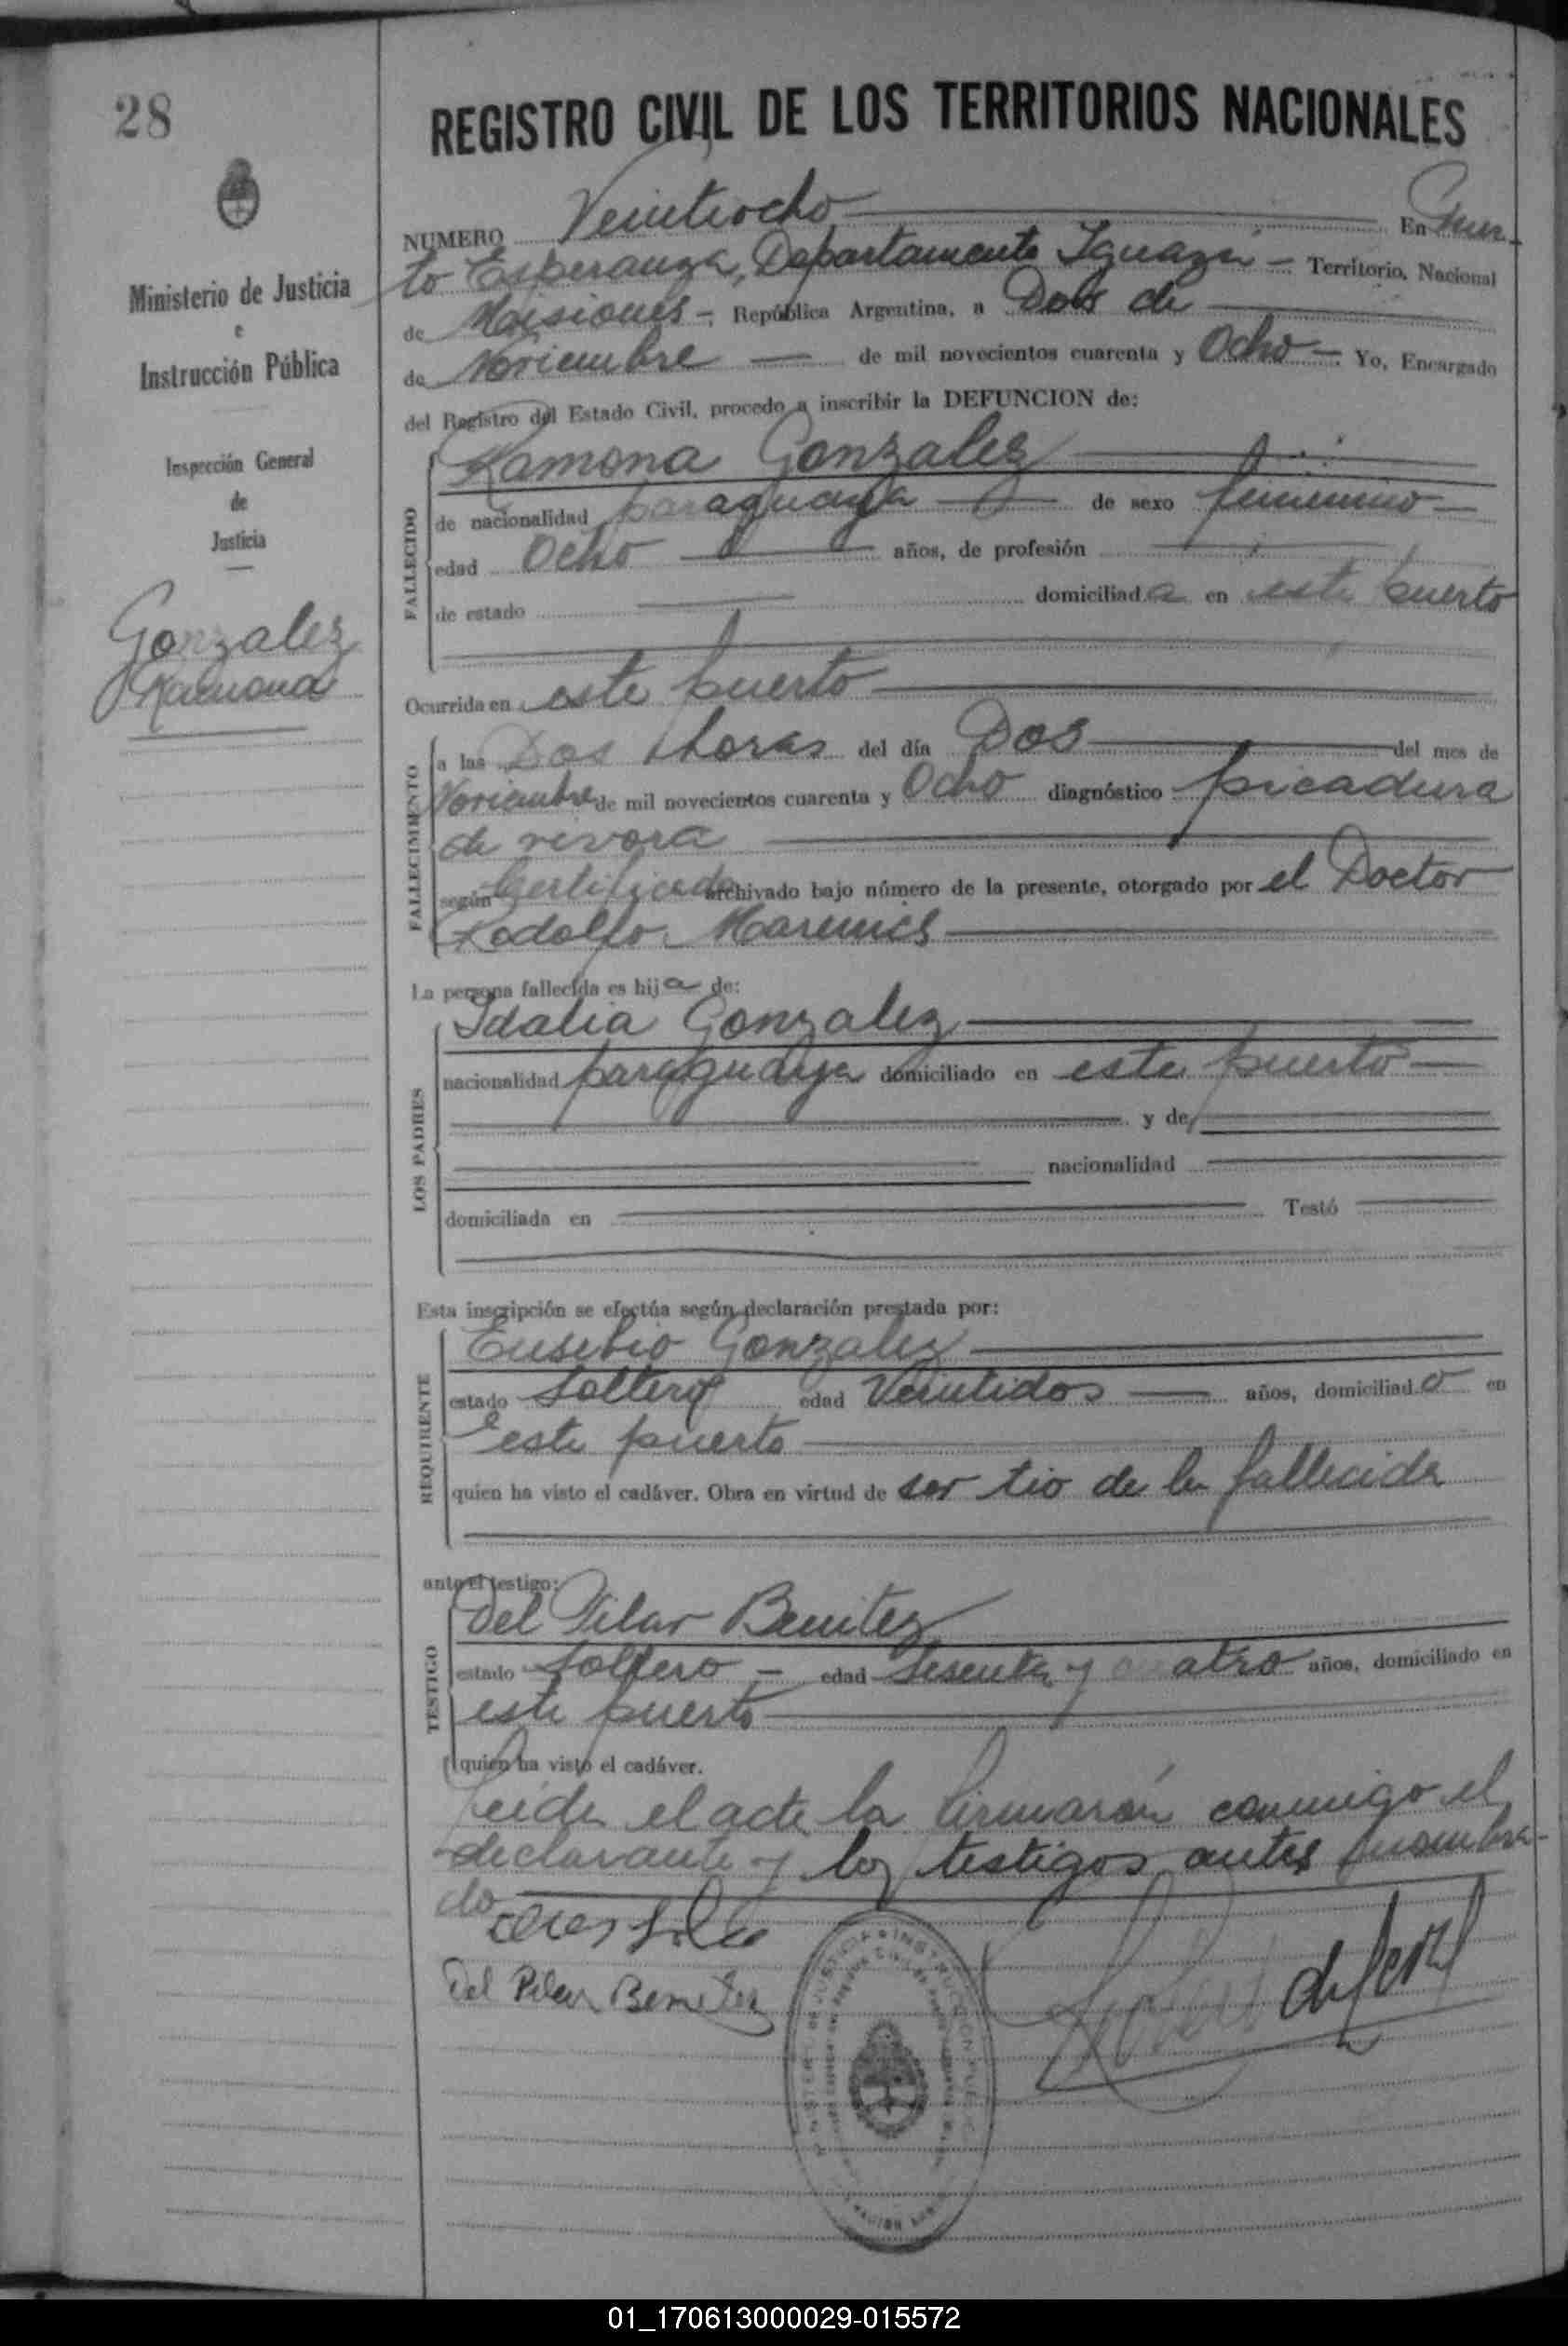 28
REGISTRO CIVIL DE LOS TERRITORIOS NACIONALES
Ministerio de Justicia
e
Instrucción Pública
Inspección General
de
Justicia
Gonzalez
Ramona
NUMERO Veintiocho En Puer-
to Esperanza, Departamento Iguazú - Territorio, Nacional
de Misiones - República Argentina, a Dos de
de Noviembre de mil novecientos cuarenta y Ocho - Yo, Encargado
del Registro del Estado Civil, procedo a inscribir la DEFUNCION de:
FALLECIDO
Ramona Gonzalez
de nacionalidad paraguaya de sexo femenino
edad Ocho años, de profesión
de estado domiciliada en este puerto
Ocurrida en este puerto
FALLECIMIENTO
a las Dos horas del día Dos del mes de
Noviembre de mil novecientos cuarenta y Ocho diagnóstico picadura
de vivora
según Certificado archivado bajo número de la presente, otorgado por el Doctor
Rodolfo
La persona fallecida es hija de:
LOS PADRES
Idalia Gonzalez
nacionalidad paraguaya domiciliado en este puerto
y de
nacionalidad
domiciliada en Testó
Esta inscripción se efectúa según declaración prestada por:
REQUIRENTE
Eusebio Gonzalez
estado Soltero edad Veintidos años, domiciliado en
este puerto
quien ha visto el cadáver. Obra en virtud de ser tio de la fallecida
ante el testigo:
TESTIGO
Del Pilar Benitez
estado Soltero - edad Sesenta y cuatro años, domiciliado en
este puerto
quien ha visto el cadáver.
Leida el acta la firmarón conmigo el
declarante y los testigos antes nombra-
do
Del Pilar Benitez
01_170613000029-015572